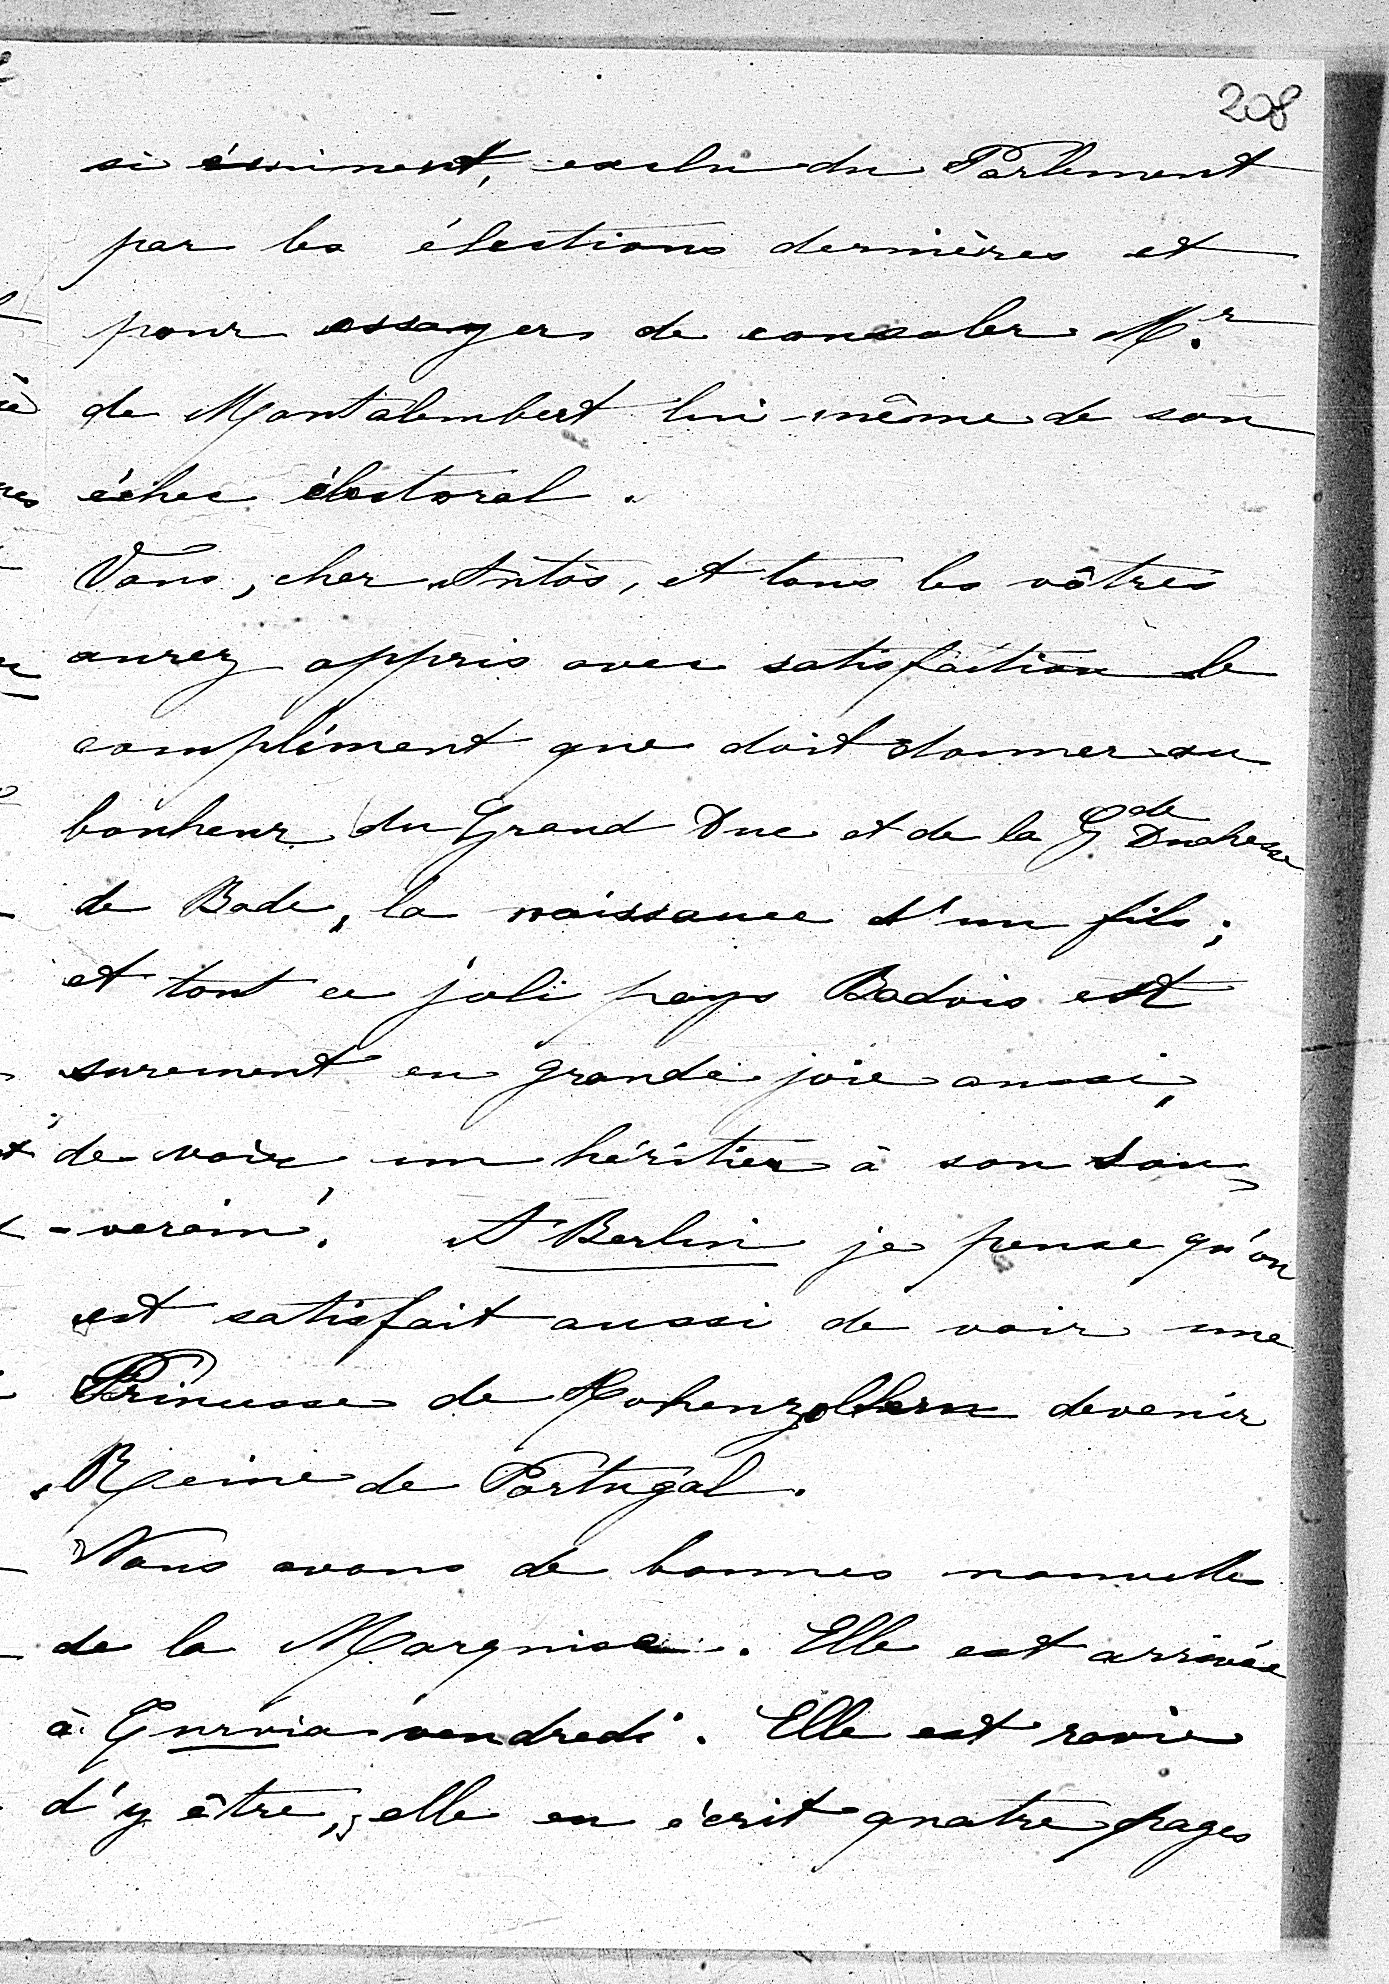 208
si éminent, exclu du Parlement
par les élections dernières et
pour essayer de consoler Mr.
de Montalembert lui-même de son
échec électoral.
Vous, cher Antós, et tous les vôtres
aurez appris avec satisfaction le
complément que doit donner au
bonheur du Grand Duc et de la Gde Duchesse
de Bade, la naissance d'un fils;
et tout ce joli pays Badois est
surement en grande joie aussi,
de voir un héritier à son sou-
-verain. A Berlin je pense qu'on
est satisfait aussi de voir une
Princesse de Hohenzollern devenir
Reine de Portugal.
Nous avons de bonnes nouvelles
de la Marquise. Elle est arrivée
à vendredi. Elle est ravie
d'y être, elle en écrit quatre pages